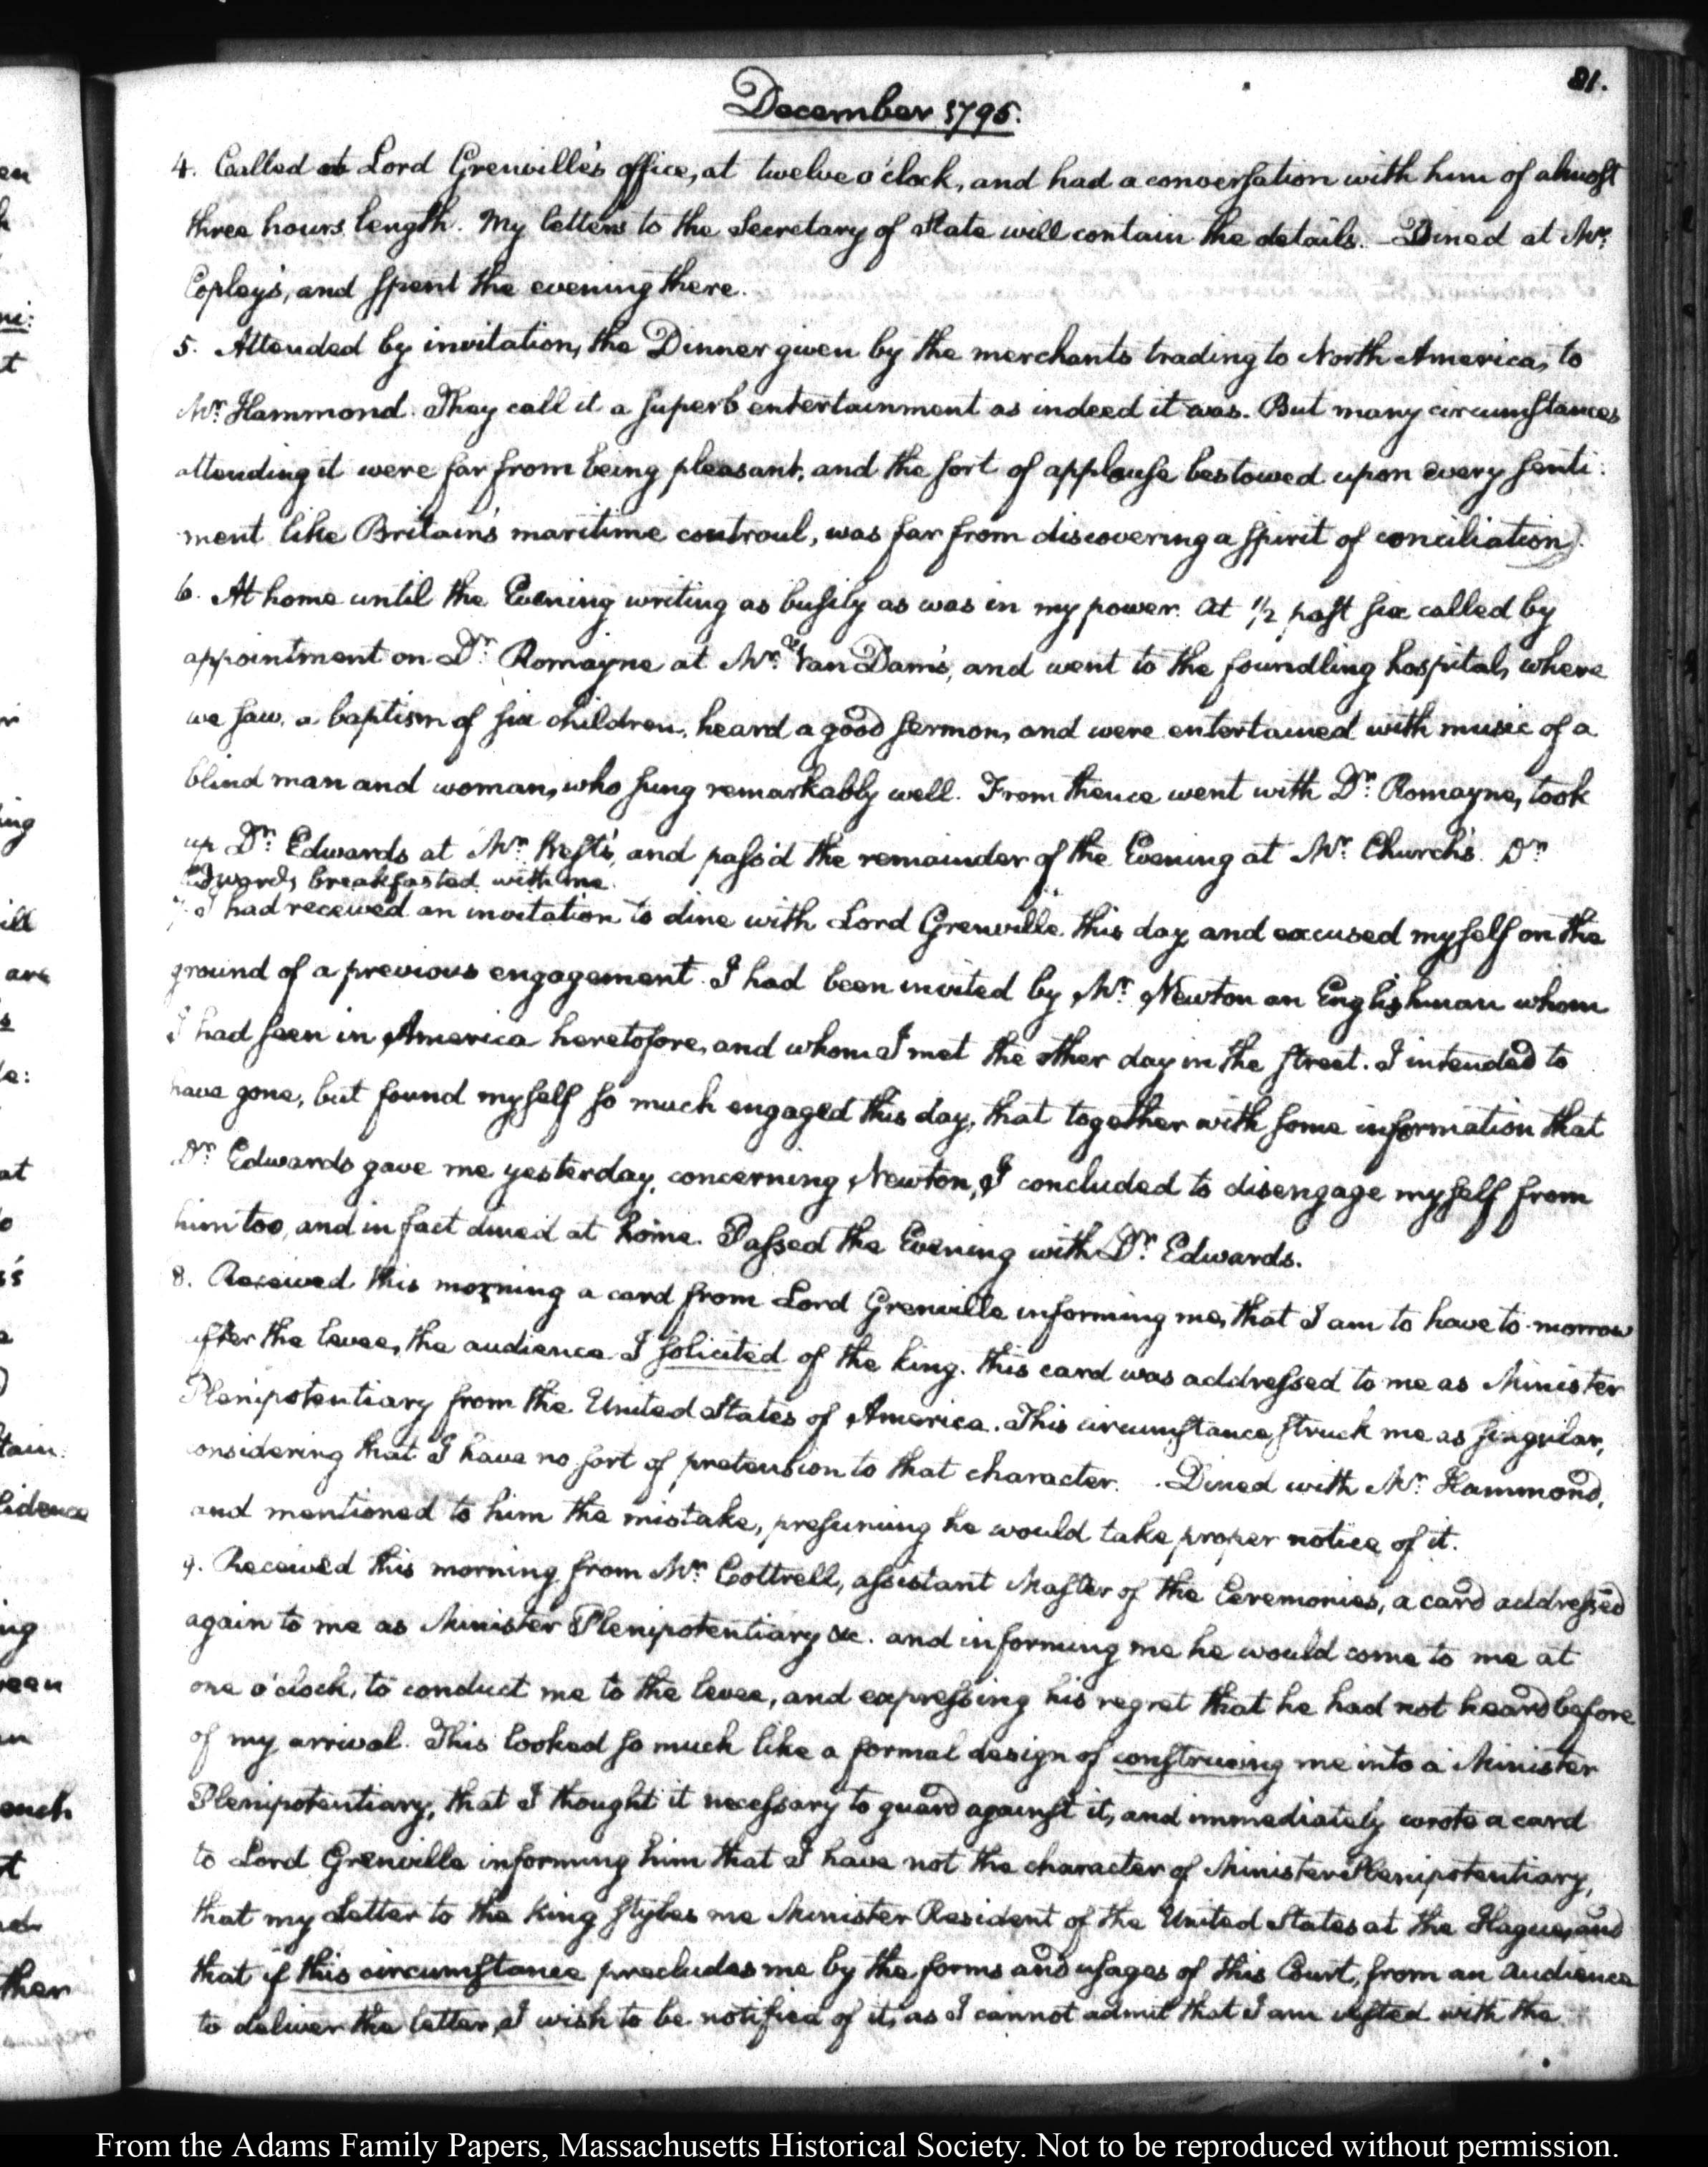 81.
December 1795.
4. Called at Lord Grenville's office, at twelve o'clock, and had a conversation with him of almost
three hours length. My letters to the Secretary of State will contain the details. Dined at Mr.
Copley's, and spent the evening there.
5. Attended by invitation, the Dinner given by the merchants trading to North America, to
Mr. Hammond. They call it a superb entertainment as indeed it was. But many circumstances
attending it were far from being pleasant, and the sort of applause bestowed upon every senti-
ment like Britain's maritime controul, was far from discovering a spirit of conciliation.
6. At home until the Evening writing as busily as was in my power. At 1/2 past six called by
appointment on Dr. Romayne at Mr. Van Dam's, and went to the foundling hospital, where
we saw a baptism of six children, heard a good sermon, and were entertained with music of a
blind man and woman, who sung remarkably well. From thence went with Dr. Romayne, took
up Dr. Edwards at Mr. and pass'd the remainder of the Evening at Mr. Church's. Dr.
Edwards breakfasted with me.
7. I had received an invitation to dine with Lord Grenville this day and excused myself on the
ground of a previous engagement. I had been invited by Mr. Newton an Englishman whom
I had seen in America heretofore, and whom I met the other day in the street. I intended to
have gone, but found myself so much engaged this day, that together with some information that
Dr. Edwards gave me yesterday, concerning Newton, I concluded to disengage myself from
him too, and in fact dined at home. Passed the Evening with Dr. Edwards.
8. Received this morning a card from Lord Grenville informing me, that I am to have to-morrow
after the levee, the audience I solicited of the king. This card was addressed to me as Minister
Plenipotentiary from the United States of America. This circumstance struck me as singular,
considering that I have no sort of pretension to that character. Dined with Mr. Hammond,
and mentioned to him the mistake, presuming he would take proper notice of it.
9. Received this morning from Mr. Cottrell, assistant Master of the Ceremonies, a card addressed
again to me as Minister Plenipotentiary &c. and informing me he would come to me at
one o'clock, to conduct me to the levee, and expressing his regret that he had not heard before
of my arrival. This looked so much like a formal design of construeing me into a Minister
Plenipotentiary, that I thought it necessary to guard against it, and immediately wrote a card
to Lord Grenville informing him that I have not the character of Minister Plenipotentiary,
that my Letter to the King styles me Minister Resident of the United States at the Hague, and
that if this circumstance precludes me by the forms and usages of this Court, from an audience
to deliver the letter, I wish to be notified of it, as I cannot admit that I am vested with the
From the Adams Family Papers, Massachusetts Historical Society. Not to be reproduced without permission.